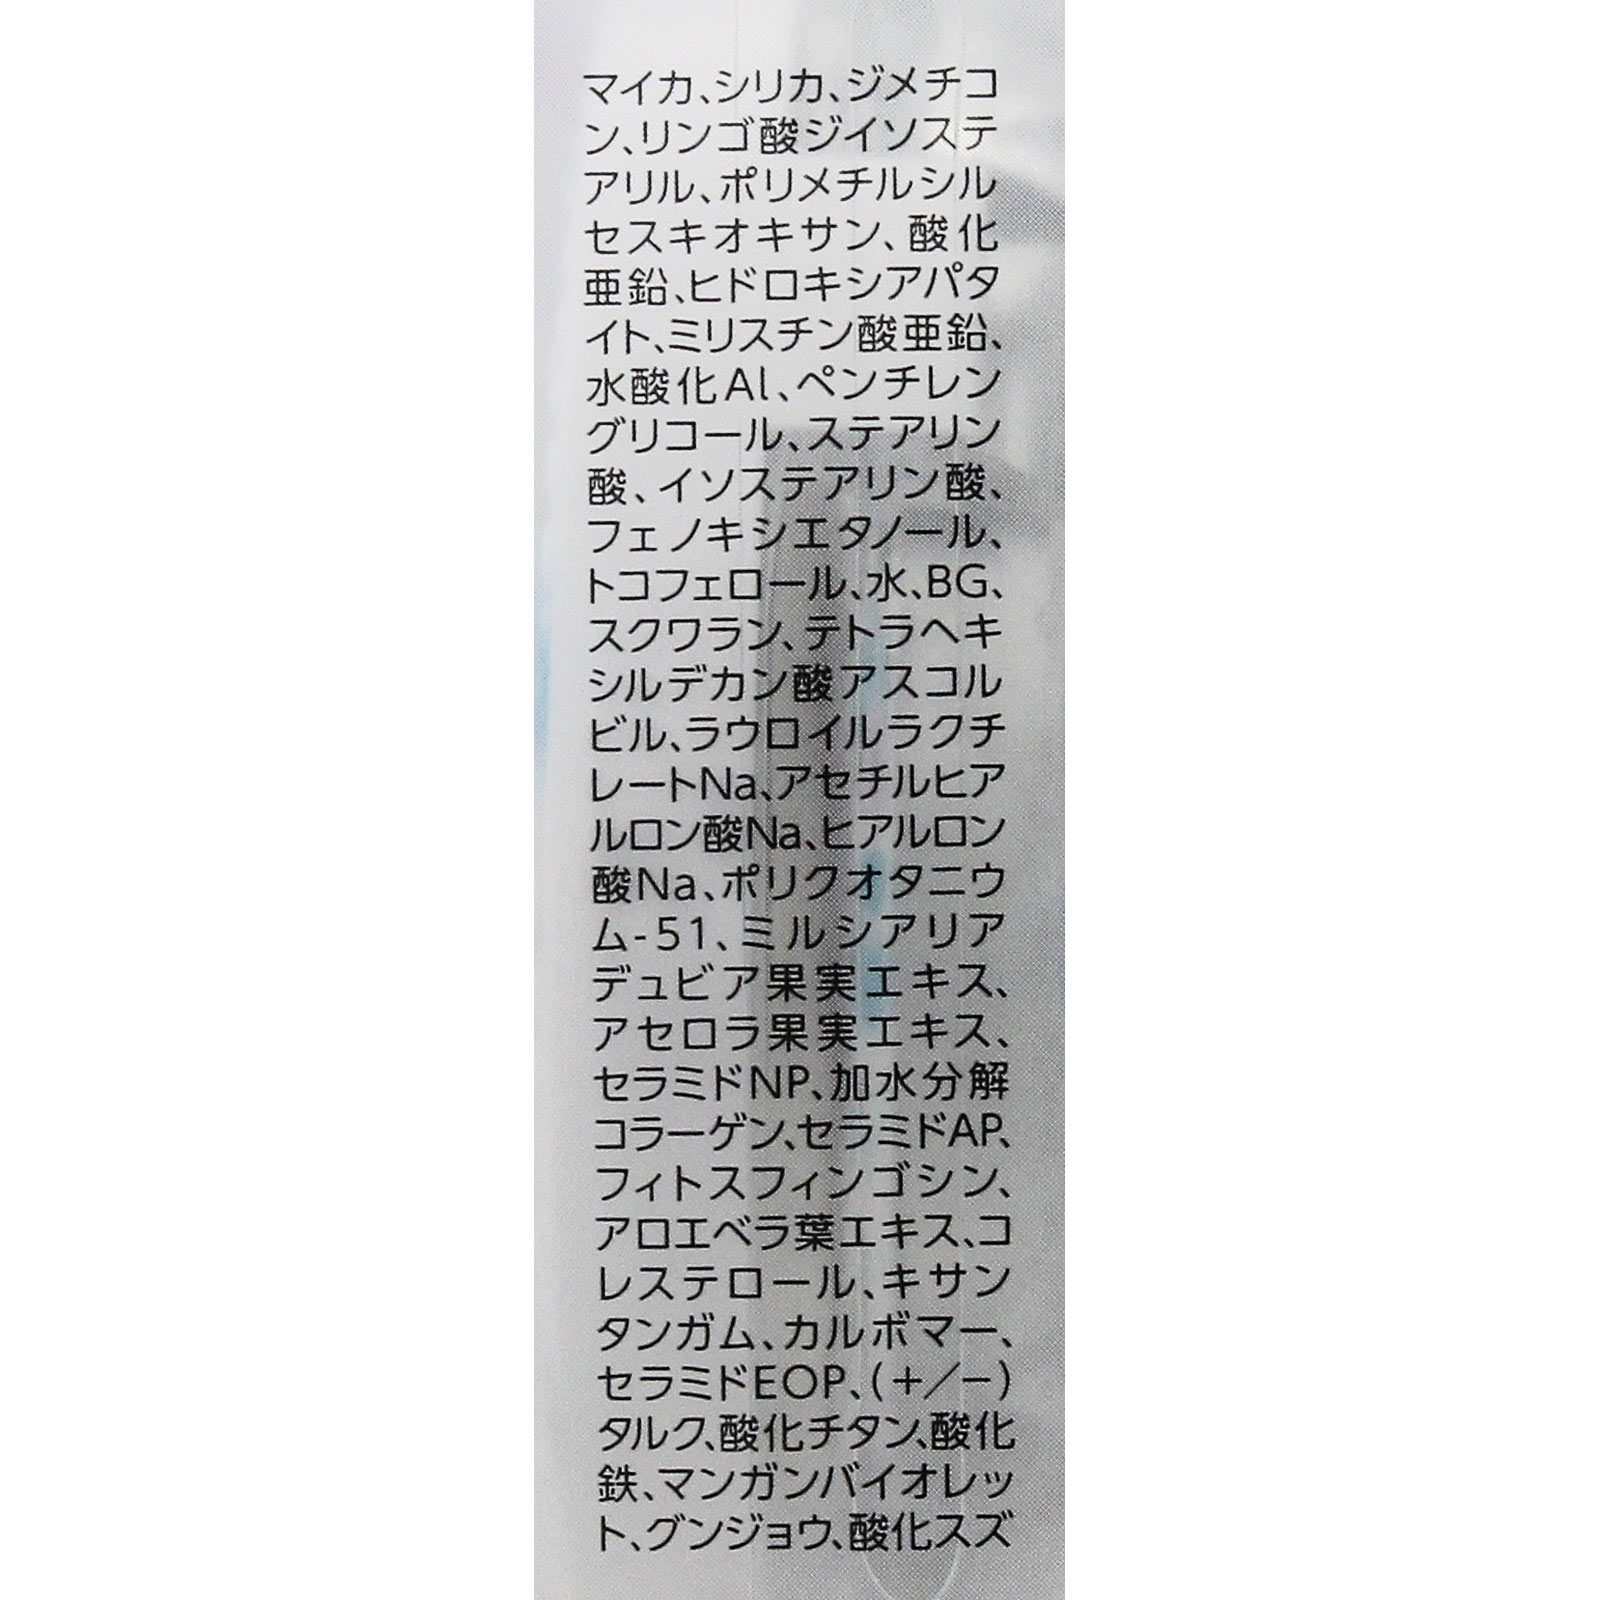 マイカ、シリカ、ジメチコ
ン、リンゴ酸ジイソステ
アリル、ポリメチルシル
セスキオキサン、酸化
亜鉛、ヒドロキシアパタ
イト、ミリスチン酸亜鉛、
水酸化Al、ペンチレン
グリコール、ステアリン
酸、イソステアリン酸、
フェノキシエタノール、
トコフェロール、水、BG、
スクワラン、テトラヘキ
シルデカン酸アスコル
ビル、ラウロイルラクチ
レートNa、アセチルヒア
ルロン酸Na、ヒアルロン
酸Na、ポリクオタニウ
ム-51、ミルシアリア
デュビア果実エキス、
アセロラ果実エキス、
セラミドNP、加水分解
コラーゲン、セラミドAP、
フィトスフィンゴシン、
アロエベラ葉エキス、コ
レステロール、キサン
タンガム、カルボマー、
セラミドEOP、(＋/－)
タルク、酸化チタン、酸化
鉄、マンガンバイオレッ
ト、グンジョウ、酸化スズ